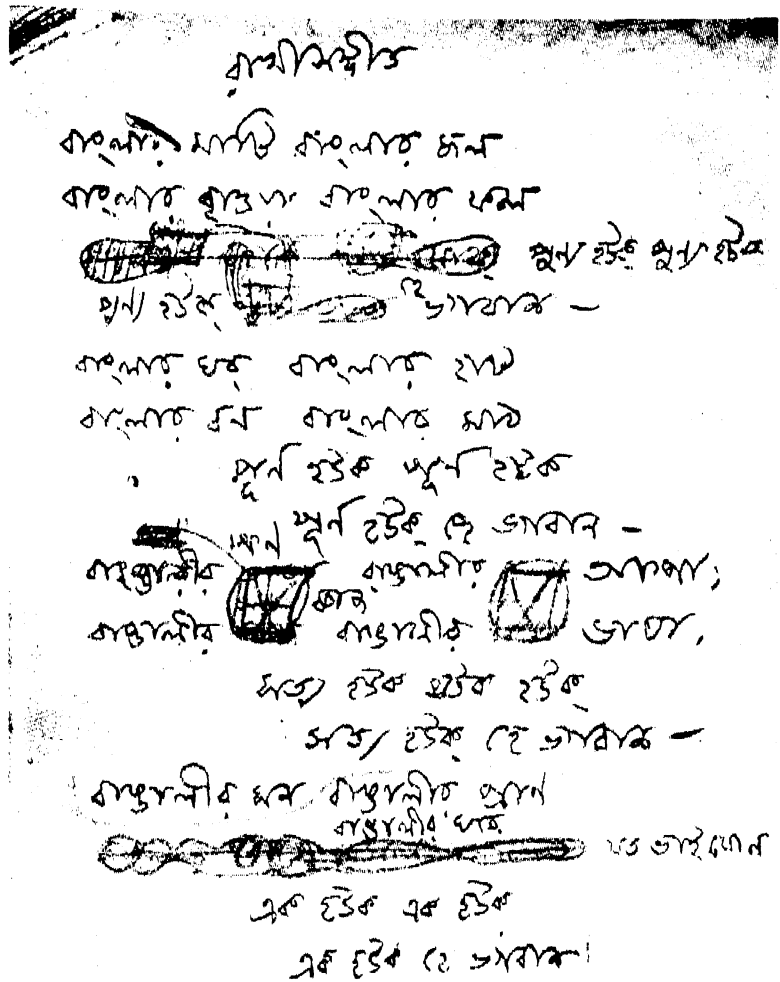 রাখীসঙ্গীত
বাংলার মাটি বাংলার জল
বাংলার বায়ু বাংলার ফল
পুন্য হউক্ পুন্য হউক
পুন্য হউক্ হে ভগবান –
বাংলার ঘর্ বাংলার হাট
বাংলার বন বাংলার মাঠ
পূর্ন হউক পূর্ন হউক
পূর্ন হউক্ হে ভগবান –
বাঙালীর পণ বাঙালীর আশা,
বাঙালীর কাজ বাঙালীর ভাষা,
সত্য হউক সত্য হউক্
সত্য হউক্ হে ভগবান –
বাঙালীর মন বাঙালীর প্রাণ
বাঙালীর ঘরে
যত ভাই বোন
এক হউক এক হউক
এক হউক হে ভগবান।